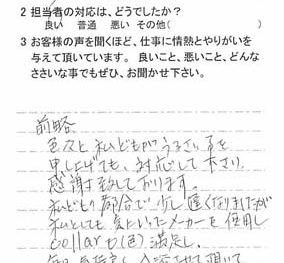 2 担当者の対応は、どうでしたか?
良い 普通 悪い その他(
3 お客様の声を聞くほど、仕事に情熱とやりがいを
与えて頂いています。 良いこと、悪いこと、どんな
ささいな事でもぜひ、お聞かせ下さい。
前略
色々と私どもがうるさい事を
申し上げても、対応して下さり
感謝致しております。
私どもの都合で少し遅くなりましたが
私としても気にいったメーカーを使用し
collar(色)満足し、